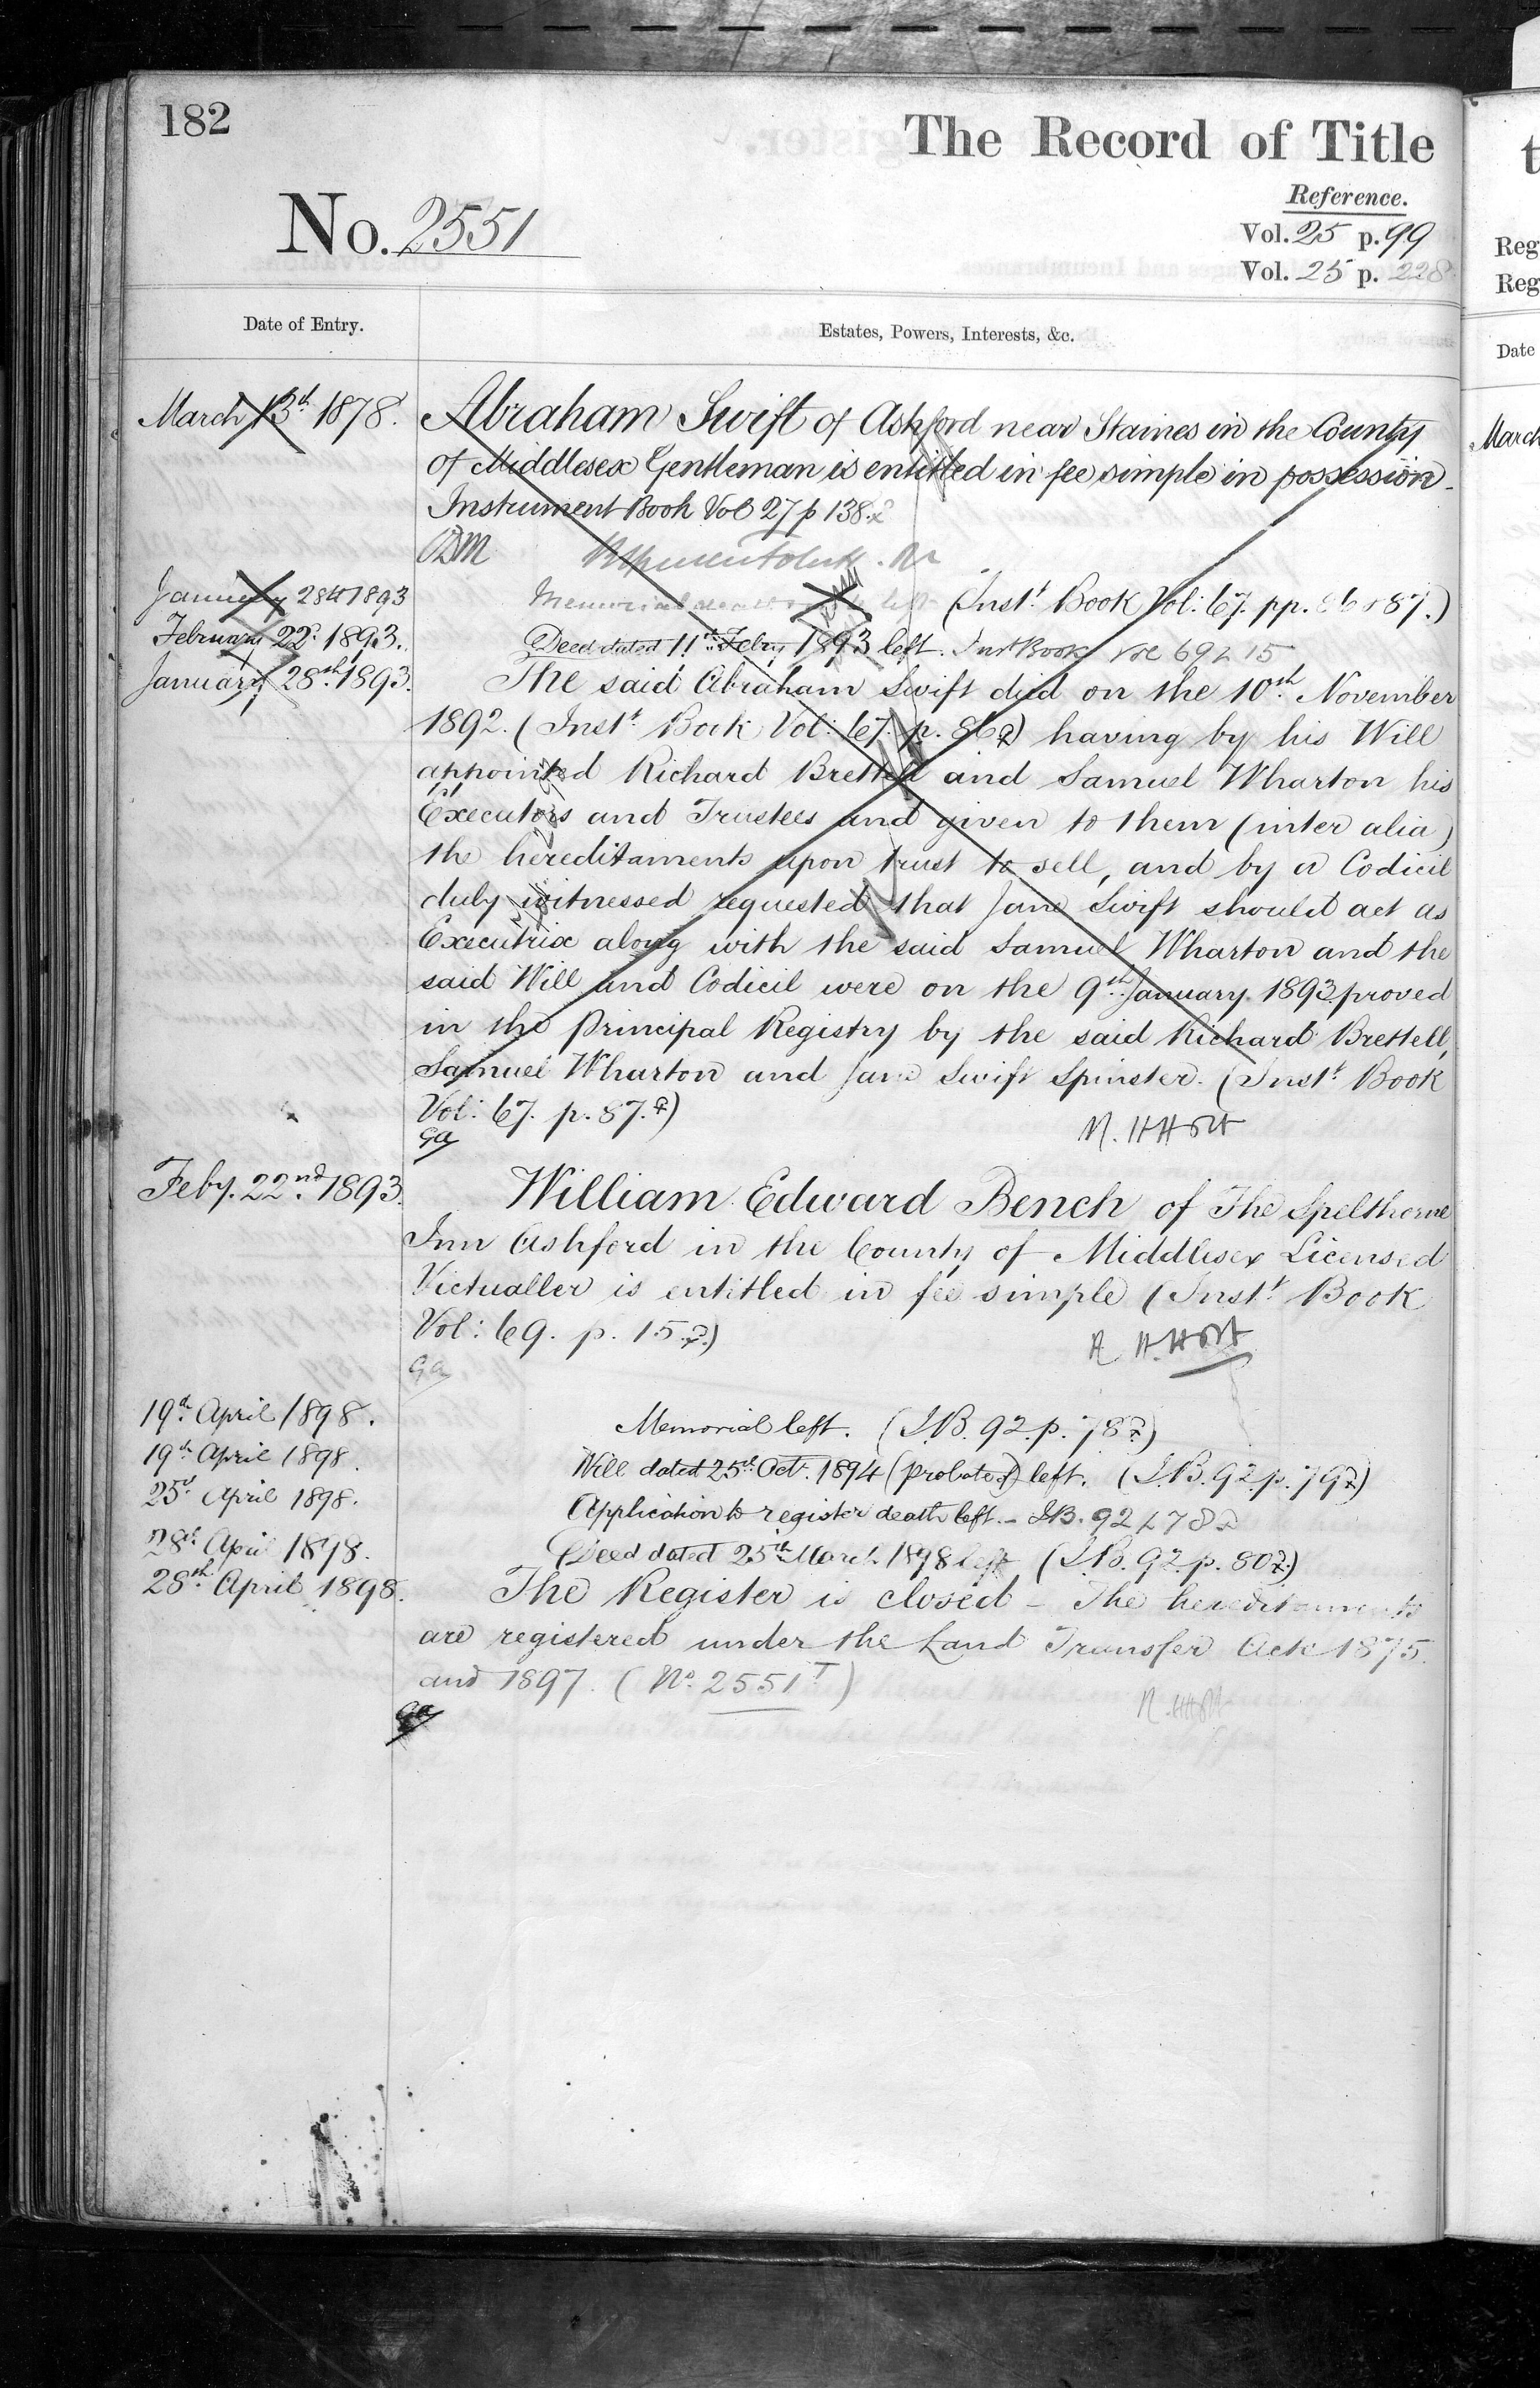 182
The Record of Title
Reference.
No. 2551
Vol. 25 p. 99
Vol. 25 p. 228
Date of Entry.
Estates, Powers, Interests, &c.
March 13th 1878.
Abraham Swift of Ashford near Staines in the County
of Middlesex Gentleman is entitled in fee simple in possession
Instrument Book Vol 27 p 138.
January 28th 1893
Memorial left (Inst. Book Vol: 67. pp. 86 & 87.)
February 22d. 1893.
Deed dated 11th Febry 1893 left. Inst Book Vol 69 p 15
January 28th 1893.
The said Abraham Swift died on the 10th November
1892. (Inst. Book Vol: 67. p. 86) having by his Will
appointed Richard Brettell and Samuel Wharton his
Executors and Trustees and given to them (inter alia)
the hereditaments upon trust to sell, and by a Codicil
duly witnessed requested that Jane Swift should act as
Executrix along with the said Samuel Wharton and the
said Will and Codicil were on the 9th January 1893 proved
in the Principal Registry by the said Richard Brettell,
Samuel Wharton and Jane Swift Spinster. (Inst. Book
Vol: 67. p. 87.)
Feby. 22nd. 1893.
William Edward Bench of The Spelthorne
Inn Ashford in the County of Middlesex Licensed
Victualler is entitled in fee simple (Inst. Book
Vol: 69. p. 15.)
19th April 1898.
Memorial left. (I.B. 92. p. 78)
19th April 1898.
Will dated 25th Oct. 1894 (probate of) left. (I.B. 92. p. 79)
25th April 1898.
Application to register death left. - I.B. 92 p 78
28th April 1898.
Deed dated 25th March 1898 left (I.B. 92. p. 80)
28th April 1898.
The Register is closed - The hereditaments
are registered under the Land Transfer Acts 1875
and 1897. (No. 2551 T)
t
Reg
Reg
Date
March